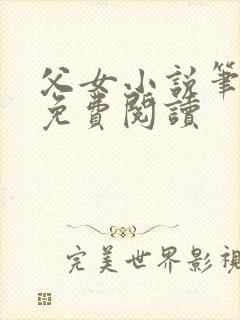 父女小説筆
免費閱讀
完美世界影視